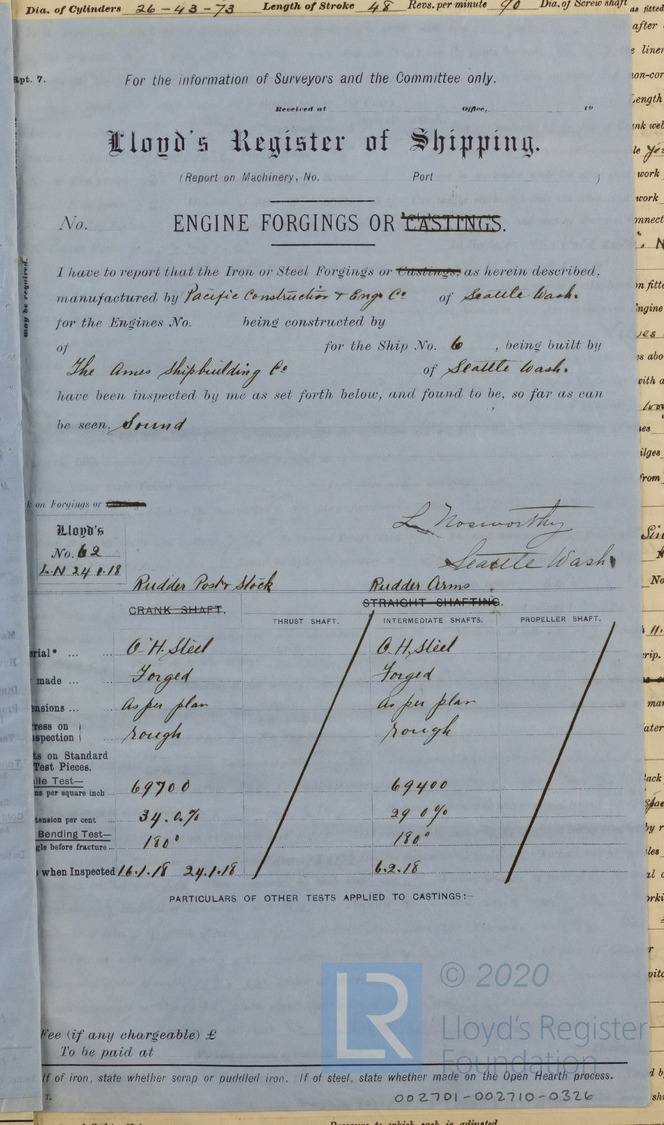 Dia. of Cylinders 26-43-73 Length of Stroke 48 Revs. per minute 90 Dia. of Screw shaft
Rpt. 7.
For the information of Surveyors and the Committee only.
Received at Office, 19
Lloyd's Register of Shipping.
(Report on Machinery, No. Port )
No. ENGINE FORGINGS OR CASTINGS.
I have to report that the Iron or Steel Forgings or Castings, as herein described,
manufactured by Pacific Construction & Engr Co of Seattle Wash.
for the Engines No. being constructed by
of for the Ship No. 6, being built by
The Ames Shipbuilding Co of Seattle Wash.
have been inspected by me as set forth below, and found to be, so far as can
be seen, Sound
may be required.
on Forgings or
L Nosworthy
Seattle Wash.
Lloyd's
No. 62
L.N 24.1.18
Rudder Post & Stock Rudder Arms
CRANK SHAFT. THRUST SHAFT. STRAIGHT SHAFTING.
INTERMEDIATE SHAFTS. PROPELLER SHAFT.
rial* ... O.H. Steel O.H. Steel
made ... Forged Forged
ensions ... as per plan as per plan
ress on
spection rough rough
ts on Standard
Test Pieces.
ile Test—
ns per square inch 69700 69400
tension per cent 34.0% 29.0%
Bending Test—
gle before fracture 180° 180°
when Inspected 16.1.18 24.1.18 6.2.18
PARTICULARS OF OTHER TESTS APPLIED TO CASTINGS:—
Fee (if any chargeable) £
To be paid at
If of iron, state whether scrap or puddled iron. If of steel, state whether made on the Open Hearth process.
LR © 2020
Lloyd's Register
Foundation
002701-002710-0326